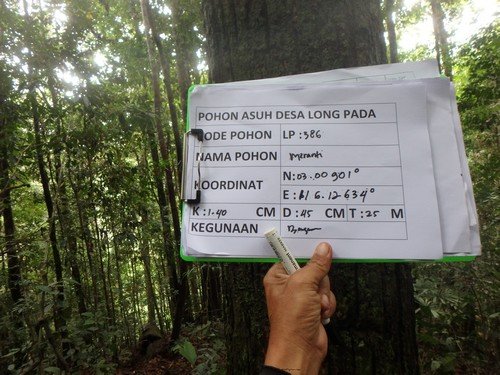 POHON ASUH DESA LONG PADA
KODE POHON LP : 386
NAMA POHON Meranti
KOORDINAT N : 03.00901°
E : 116.12634°
K : 1.40 CM D : 45 CM T : 25 M
KEGUNAAN